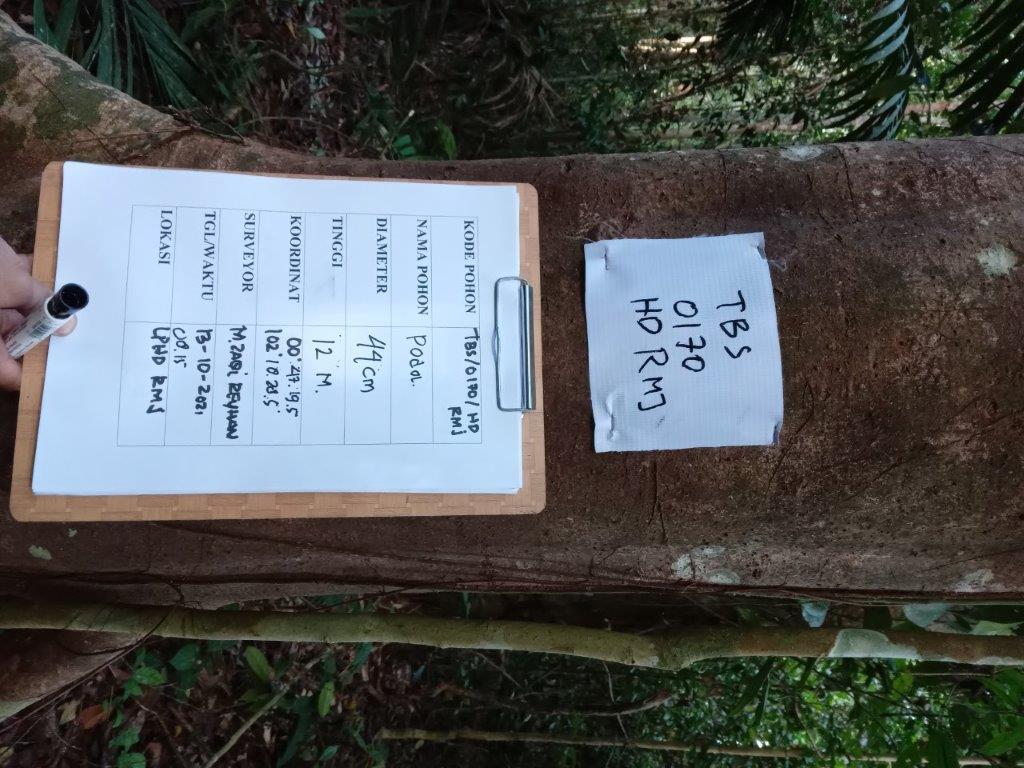 TBS
0170
HD RMJ
KODE POHON TBS/0170/HD
RMJ
NAMA POHON
DIAMETER 44 cm
TINGGI 12 M.
KOORDINAT 00° 47' 19.5
102° 10'
SURVEYOR M. ZAQI REYHAN
TGL/WAKTU 13-10-2021
LOKASI LPHD RMJ